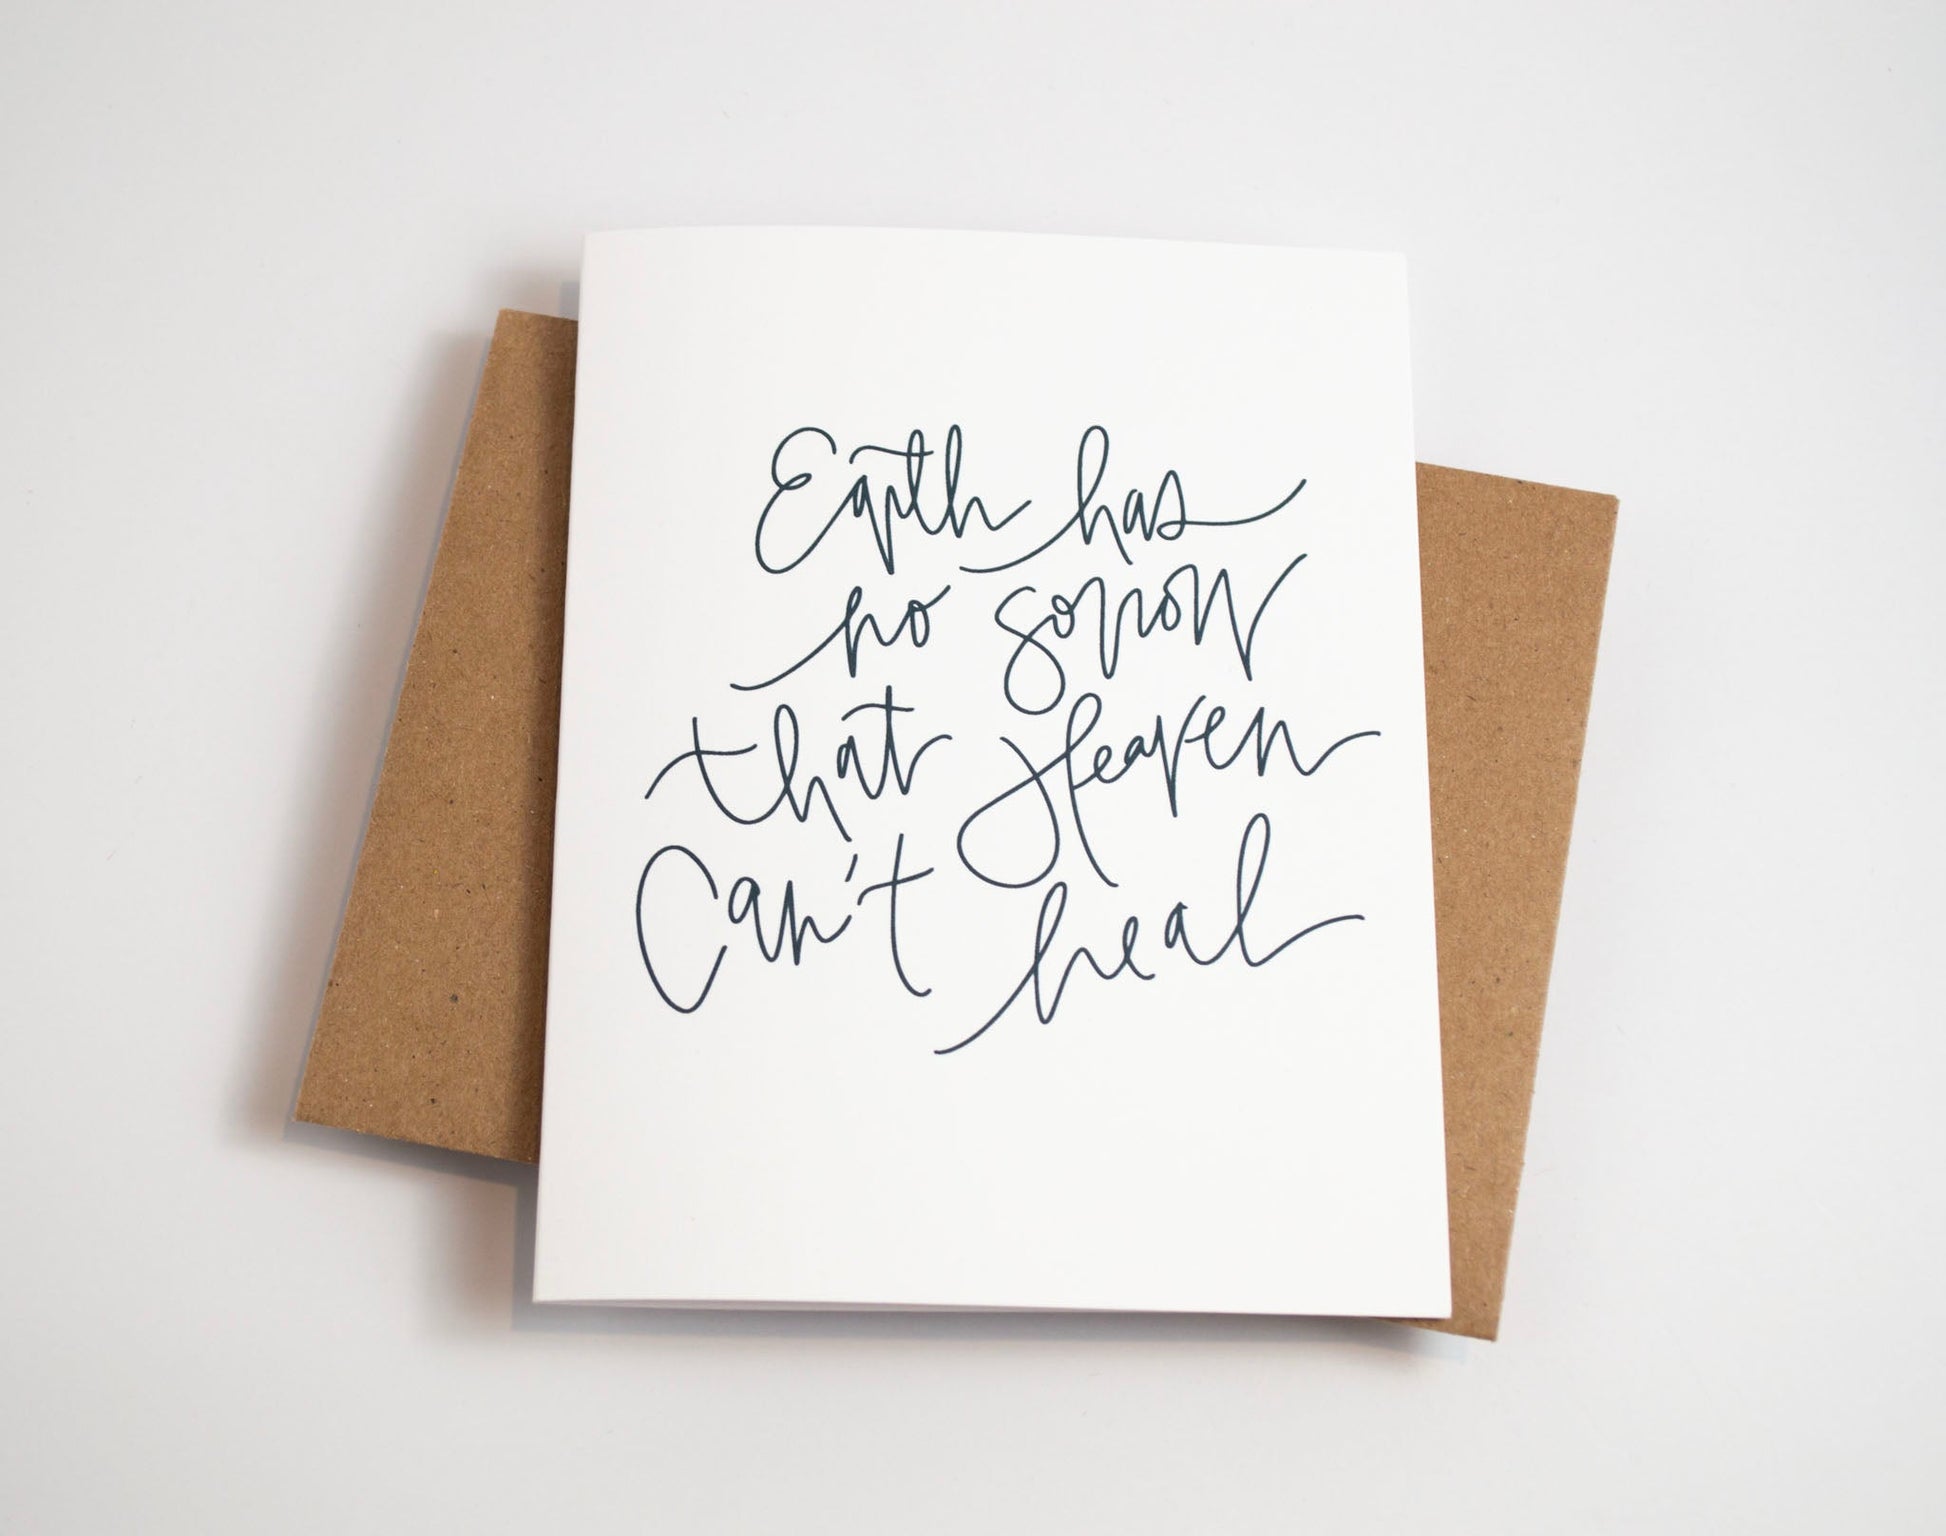 Earth has
no sorrow
that Heaven
Can't heal